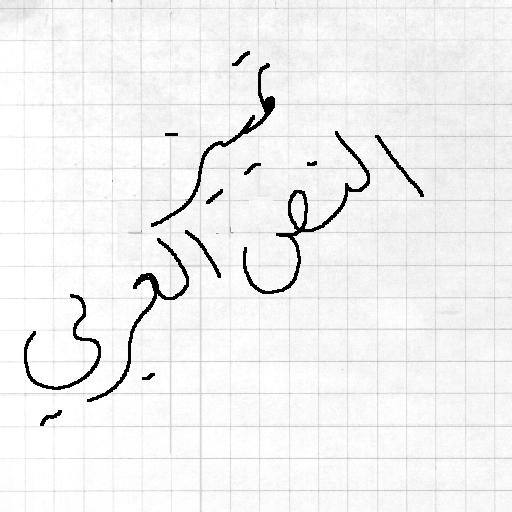 تمييز
النص العربي